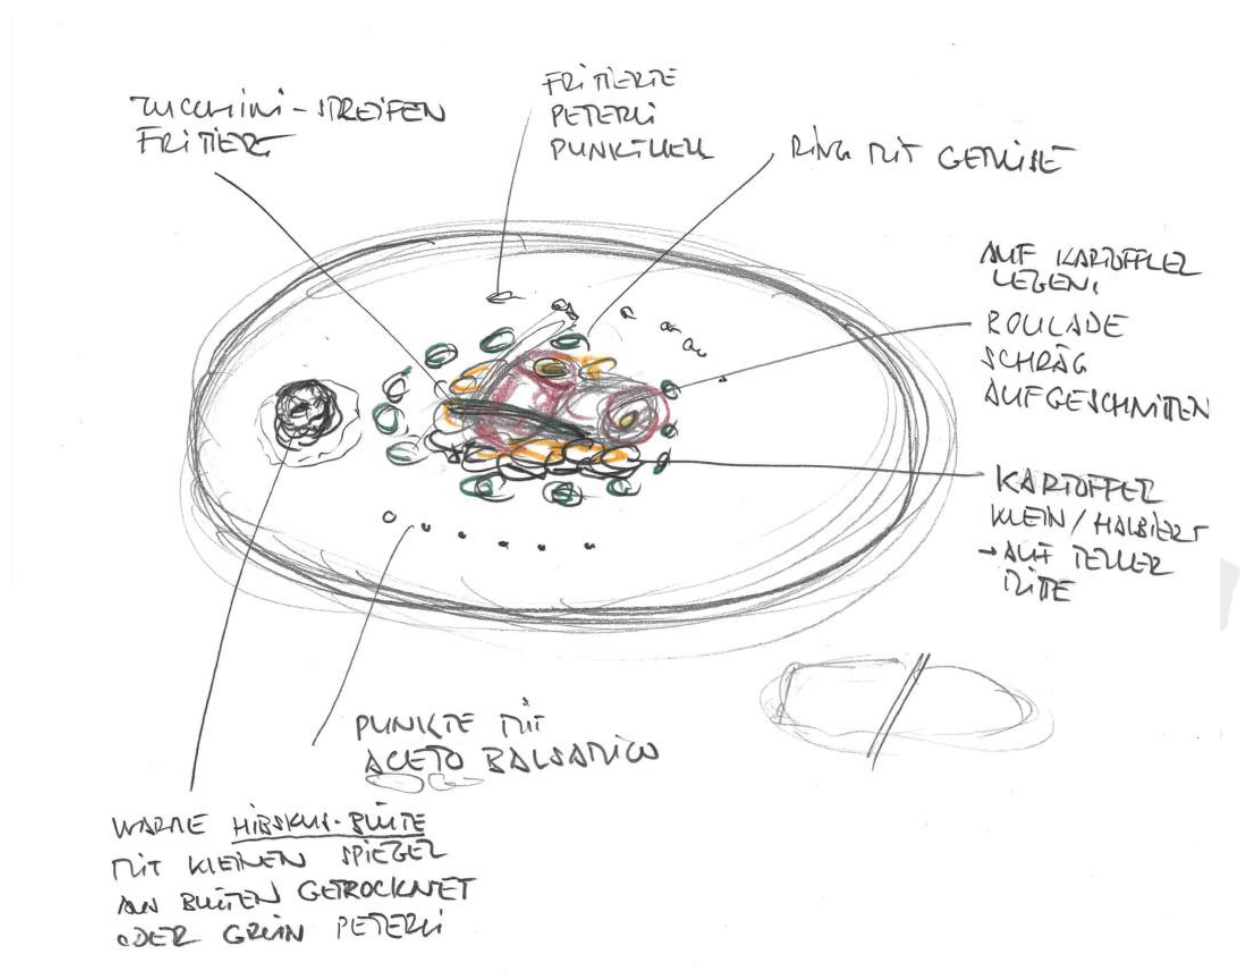 ZUCCHINI-STREIFEN
FRITIERT
FRITIERTE
PETERLI
PUNKTUELL
RING MIT GEMÜSE
AUF KARTOFFLEL
LEGEN,
ROULADE
SCHRÄG
AUFGESCHNITTEN
KARTOFFEL
KLEIN/HALBIERT
→ AUF TELLER
MITTE
PUNKTE MIT
ACETO BALSAMICO
WARME HIBSKUS-BLÜTE
MIT KLEINEN SPIEGEL
AN BLÜTEN GETROCKNET
ODER GRÜN PETERLI